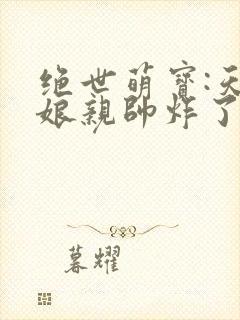 绝世萌寶:天
娘親帥炸了
暮耀